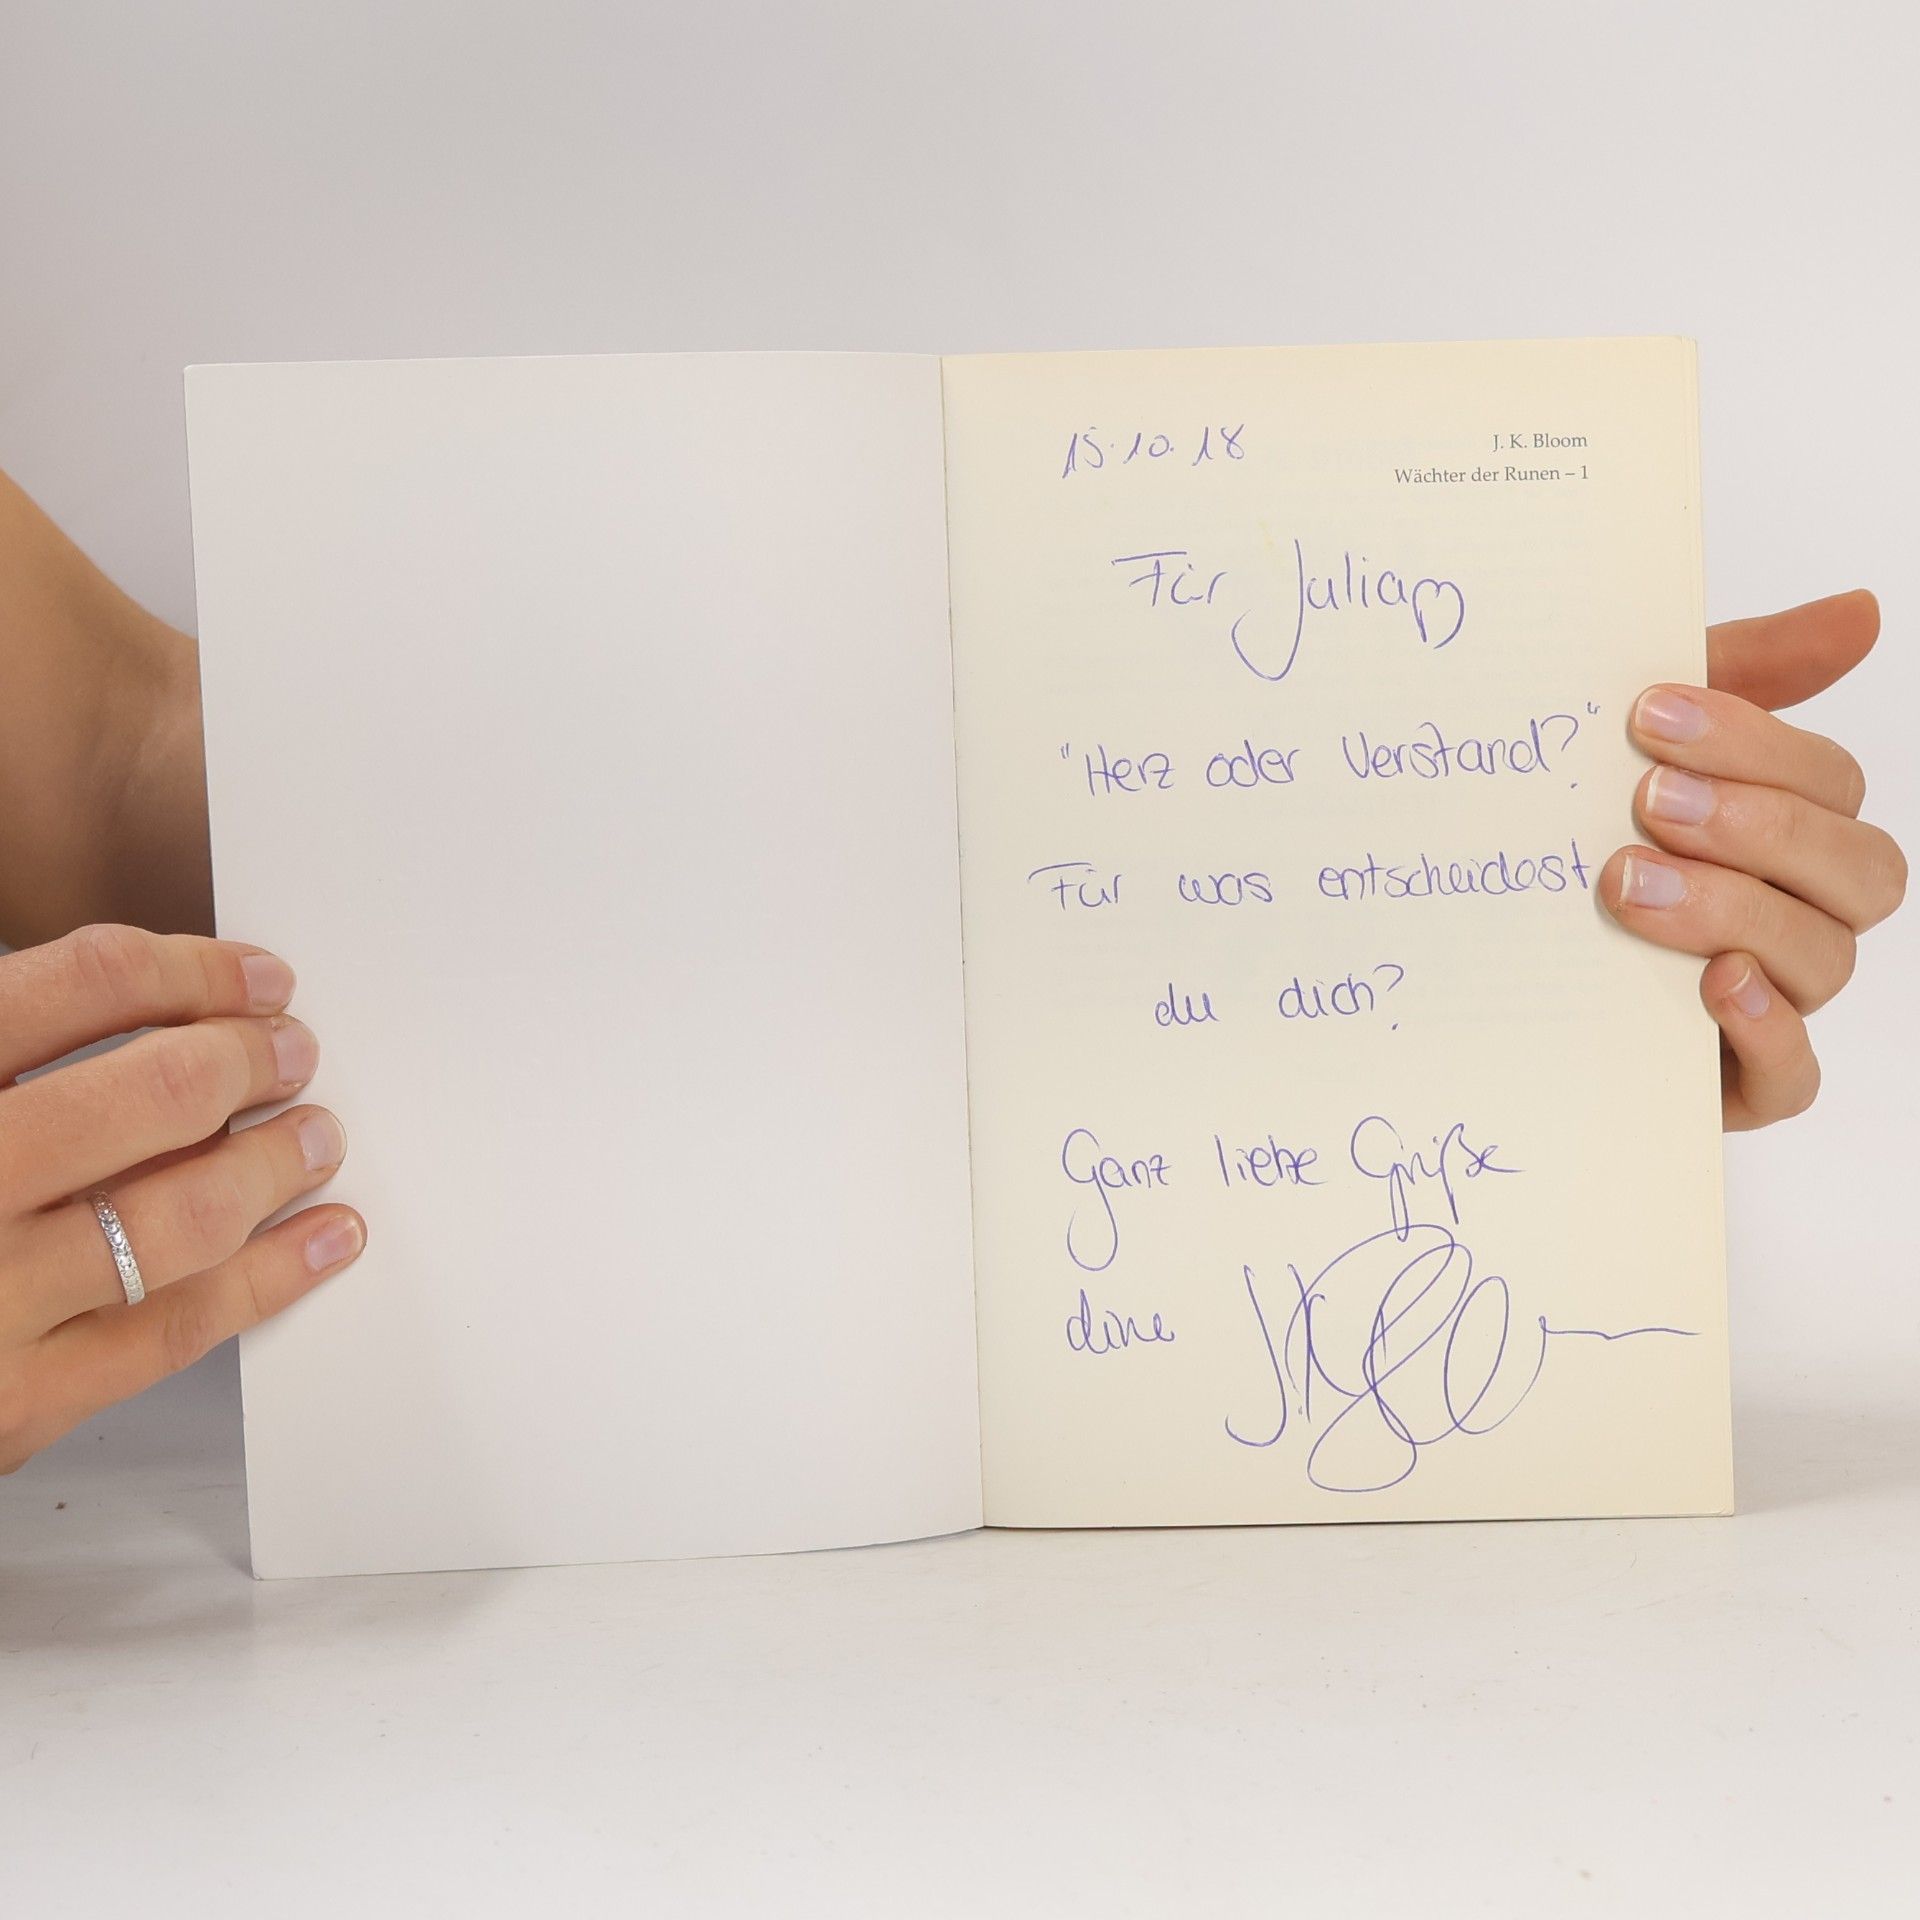 15.10.18
J. K. Bloom
Wächter der Runen – 1
Für Julian
"Herz oder Verstand?"
Für was entscheidest
du dich?
Ganz liebe Grüße
deine